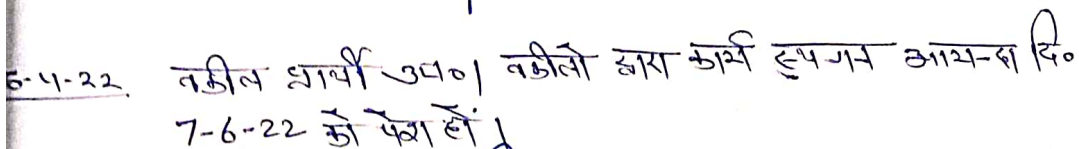 6-4-22. वकील प्रार्थी उप०। वकीलो द्वारा कार्य स्थगन दि०
7-6-22 को पेश हों।